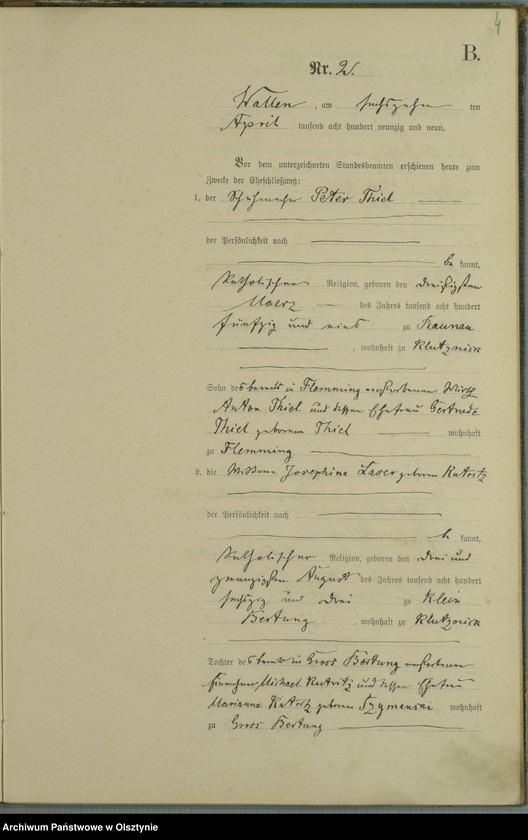 4
B.
Nr. 2.
Wallen, am sechszehn ten
April tausend acht hundert neunzig und neun.
Vor dem unterzeichneten Standesbeamten erschienen heute zum
Zwecke der Eheschließung:
1. der Schuhmacher Peter Thiel
der Persönlichkeit nach
be kannt,
katholischer Religion, geboren den dreißigsten
Maerz des Jahres tausend acht hundert
fünfzig und eins zu Kaunau
, wohnhaft zu Klutznick
Sohn des bereits in Flemming verstorbenen Wirth
Anton Thiel und dessen Ehefrau Gertrude
Thiel geborene Thiel wohnhaft
zu Flemming
2. die Wittwe Josephine Laser geborene Kutritz
der Persönlichkeit nach
be kannt,
katholischer Religion, geboren den drei und
zwanzigsten August des Jahres tausend acht hundert
sechszig und drei zu Klein
Bertung, wohnhaft zu Klutznick
Tochter des in Gross Bertung verstorbenen
Michael Kutritz und dessen Ehefrau
Marianna Kutritz geborene Szymanski wohnhaft
zu Gross Bertung
Archiwum Państwowe w Olsztynie